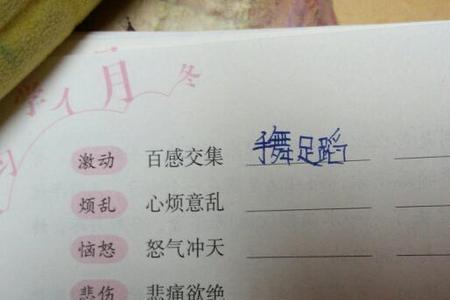 学人月
冬
习
激动 百感交集 手舞足蹈
烦乱 心烦意乱
恼怒 怒气冲天
悲伤 悲痛欲绝